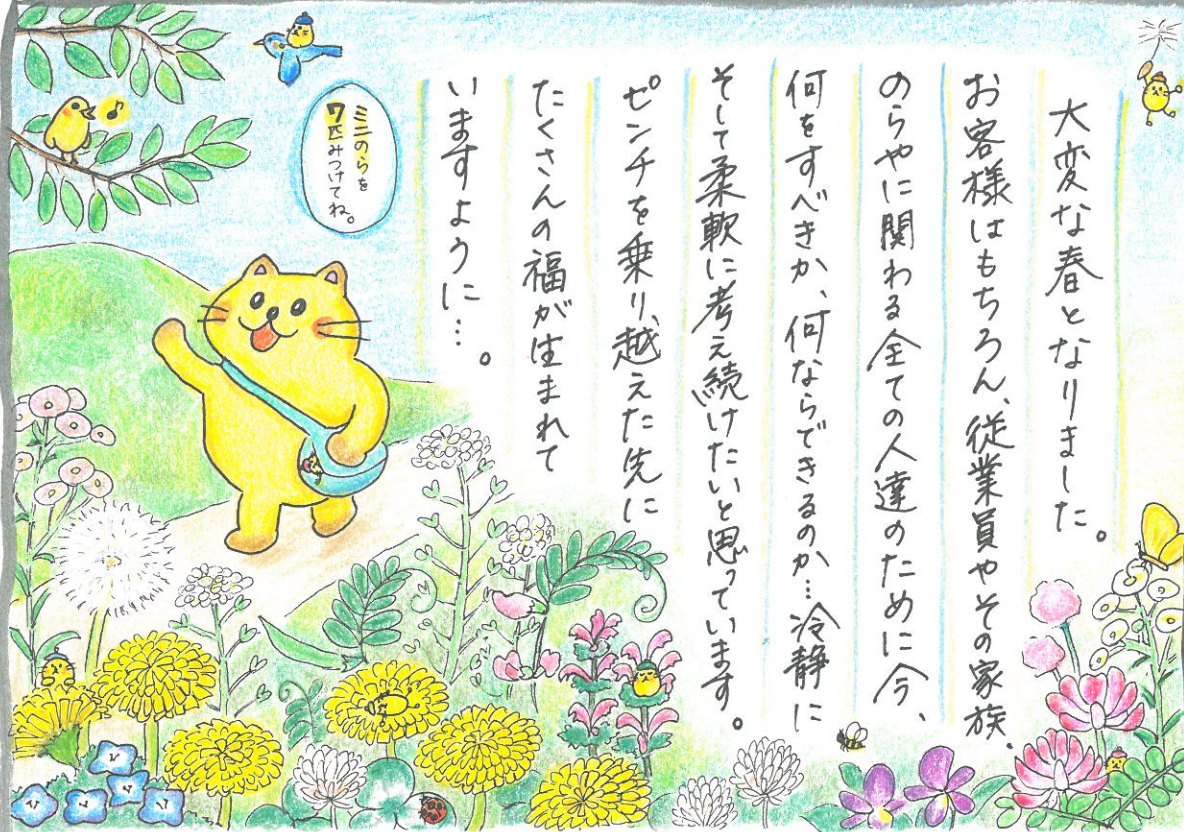 大変な春となりました。
お客様はもちろん、従業員やその家族、
のらやに関わる全ての人達のために今、
何をすべきか、何ならできるのか…冷静に
そして柔軟に考え続けたいと思っています。
ピンチを乗り越えた先に
たくさんの福が生まれて
いますように…。
ミニのらを
7匹みつけてね。